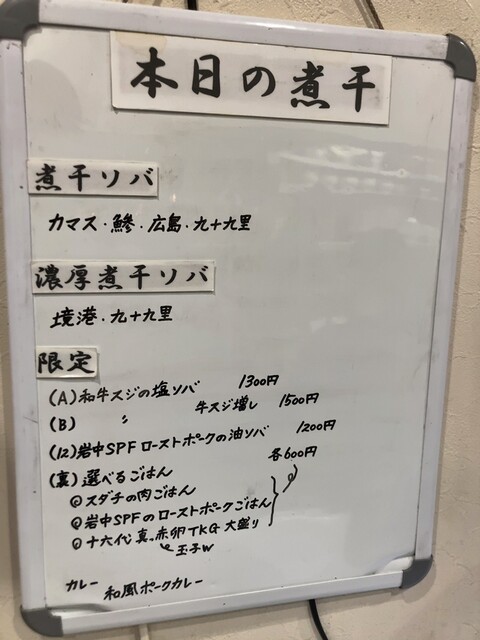 本日の煮干
煮干ソバ
カマス・鯵・広島・九十九里
濃厚煮干ソバ
境港・九十九里
限定
(A)和牛スジの塩ソバ 1300円
(B) 〃 牛スジ増し 1500円
(12)岩中SPFローストポークの油ソバ 1200円
(裏)選べるごはん 各600円
◎スダチの肉ごはん
◎岩中SPFのローストポークごはん
◎十六代真っ赤卵TKG大盛り
玉子W
カレー 和風ポークカレー